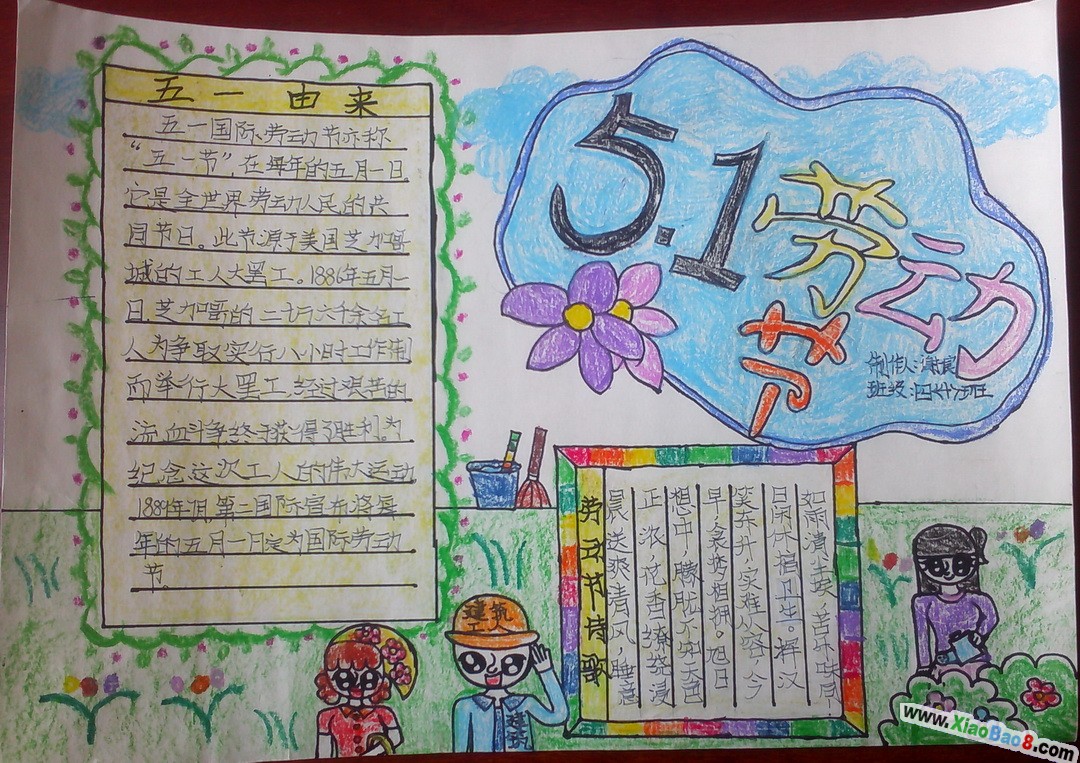 五一由来
五一国际劳动节亦称
“五一节”,在每年的五月一日
它是全世界劳动人民的共
同节日。此节源于美国芝加哥
城的工人大罢工。1886年五月一
日,芝加哥的二十万六千余名工
人为争取实行八小时工作制
而举行大罢工,经过艰苦的
流血斗争终于获得了胜利。为
纪念这次工人的伟大运动
1889年7月,第二国际宣布将每
年的五月一日定为国际劳动
节。
5.1劳动
节
制作人:谢
班级:四
劳动节诗歌
晨送爽清风,睡意
正浓,花香缭绕浸
想中,朦胧 天色
早,衾 相拥。旭日
笑东升,实难从容,今
日闲休 卫生。挥汉
如雨清 ,苦乐 同
建筑
工人
建筑
www.XiaoBao8.com